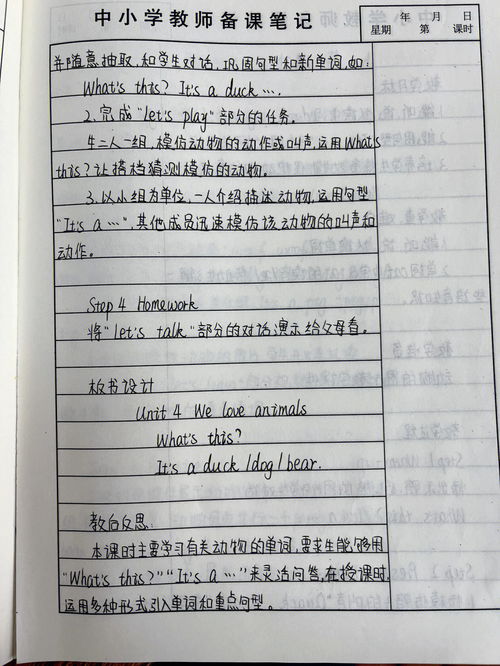 中小学教师备课笔记
年 月 日
星期 第 课时
并随意抽取,和学生对话,巩固句型和新单词,如:
What's this? It's a duck ….
2.完成"let's play"部分的任务。
生二人一组,模仿动物的动作或叫声,运用What's
this?让搭档猜测模仿的动物。
3.以小组为单位,一人介绍描述动物,运用句型
"It's a …",其他成员迅速模仿该动物的叫声和
动作。
Step 4 Homework
将"let's talk"部分的对话演示给父母看。
板书设计
Unit 4 We love animals
What's this?
It's a duck/dog/bear.
教后反思:
本课时主要学习有关动物的单词,要求生能够用
"What's this?""It's a …"来灵活问答,在授课时,
运用多种形式引入单词和重点句型。